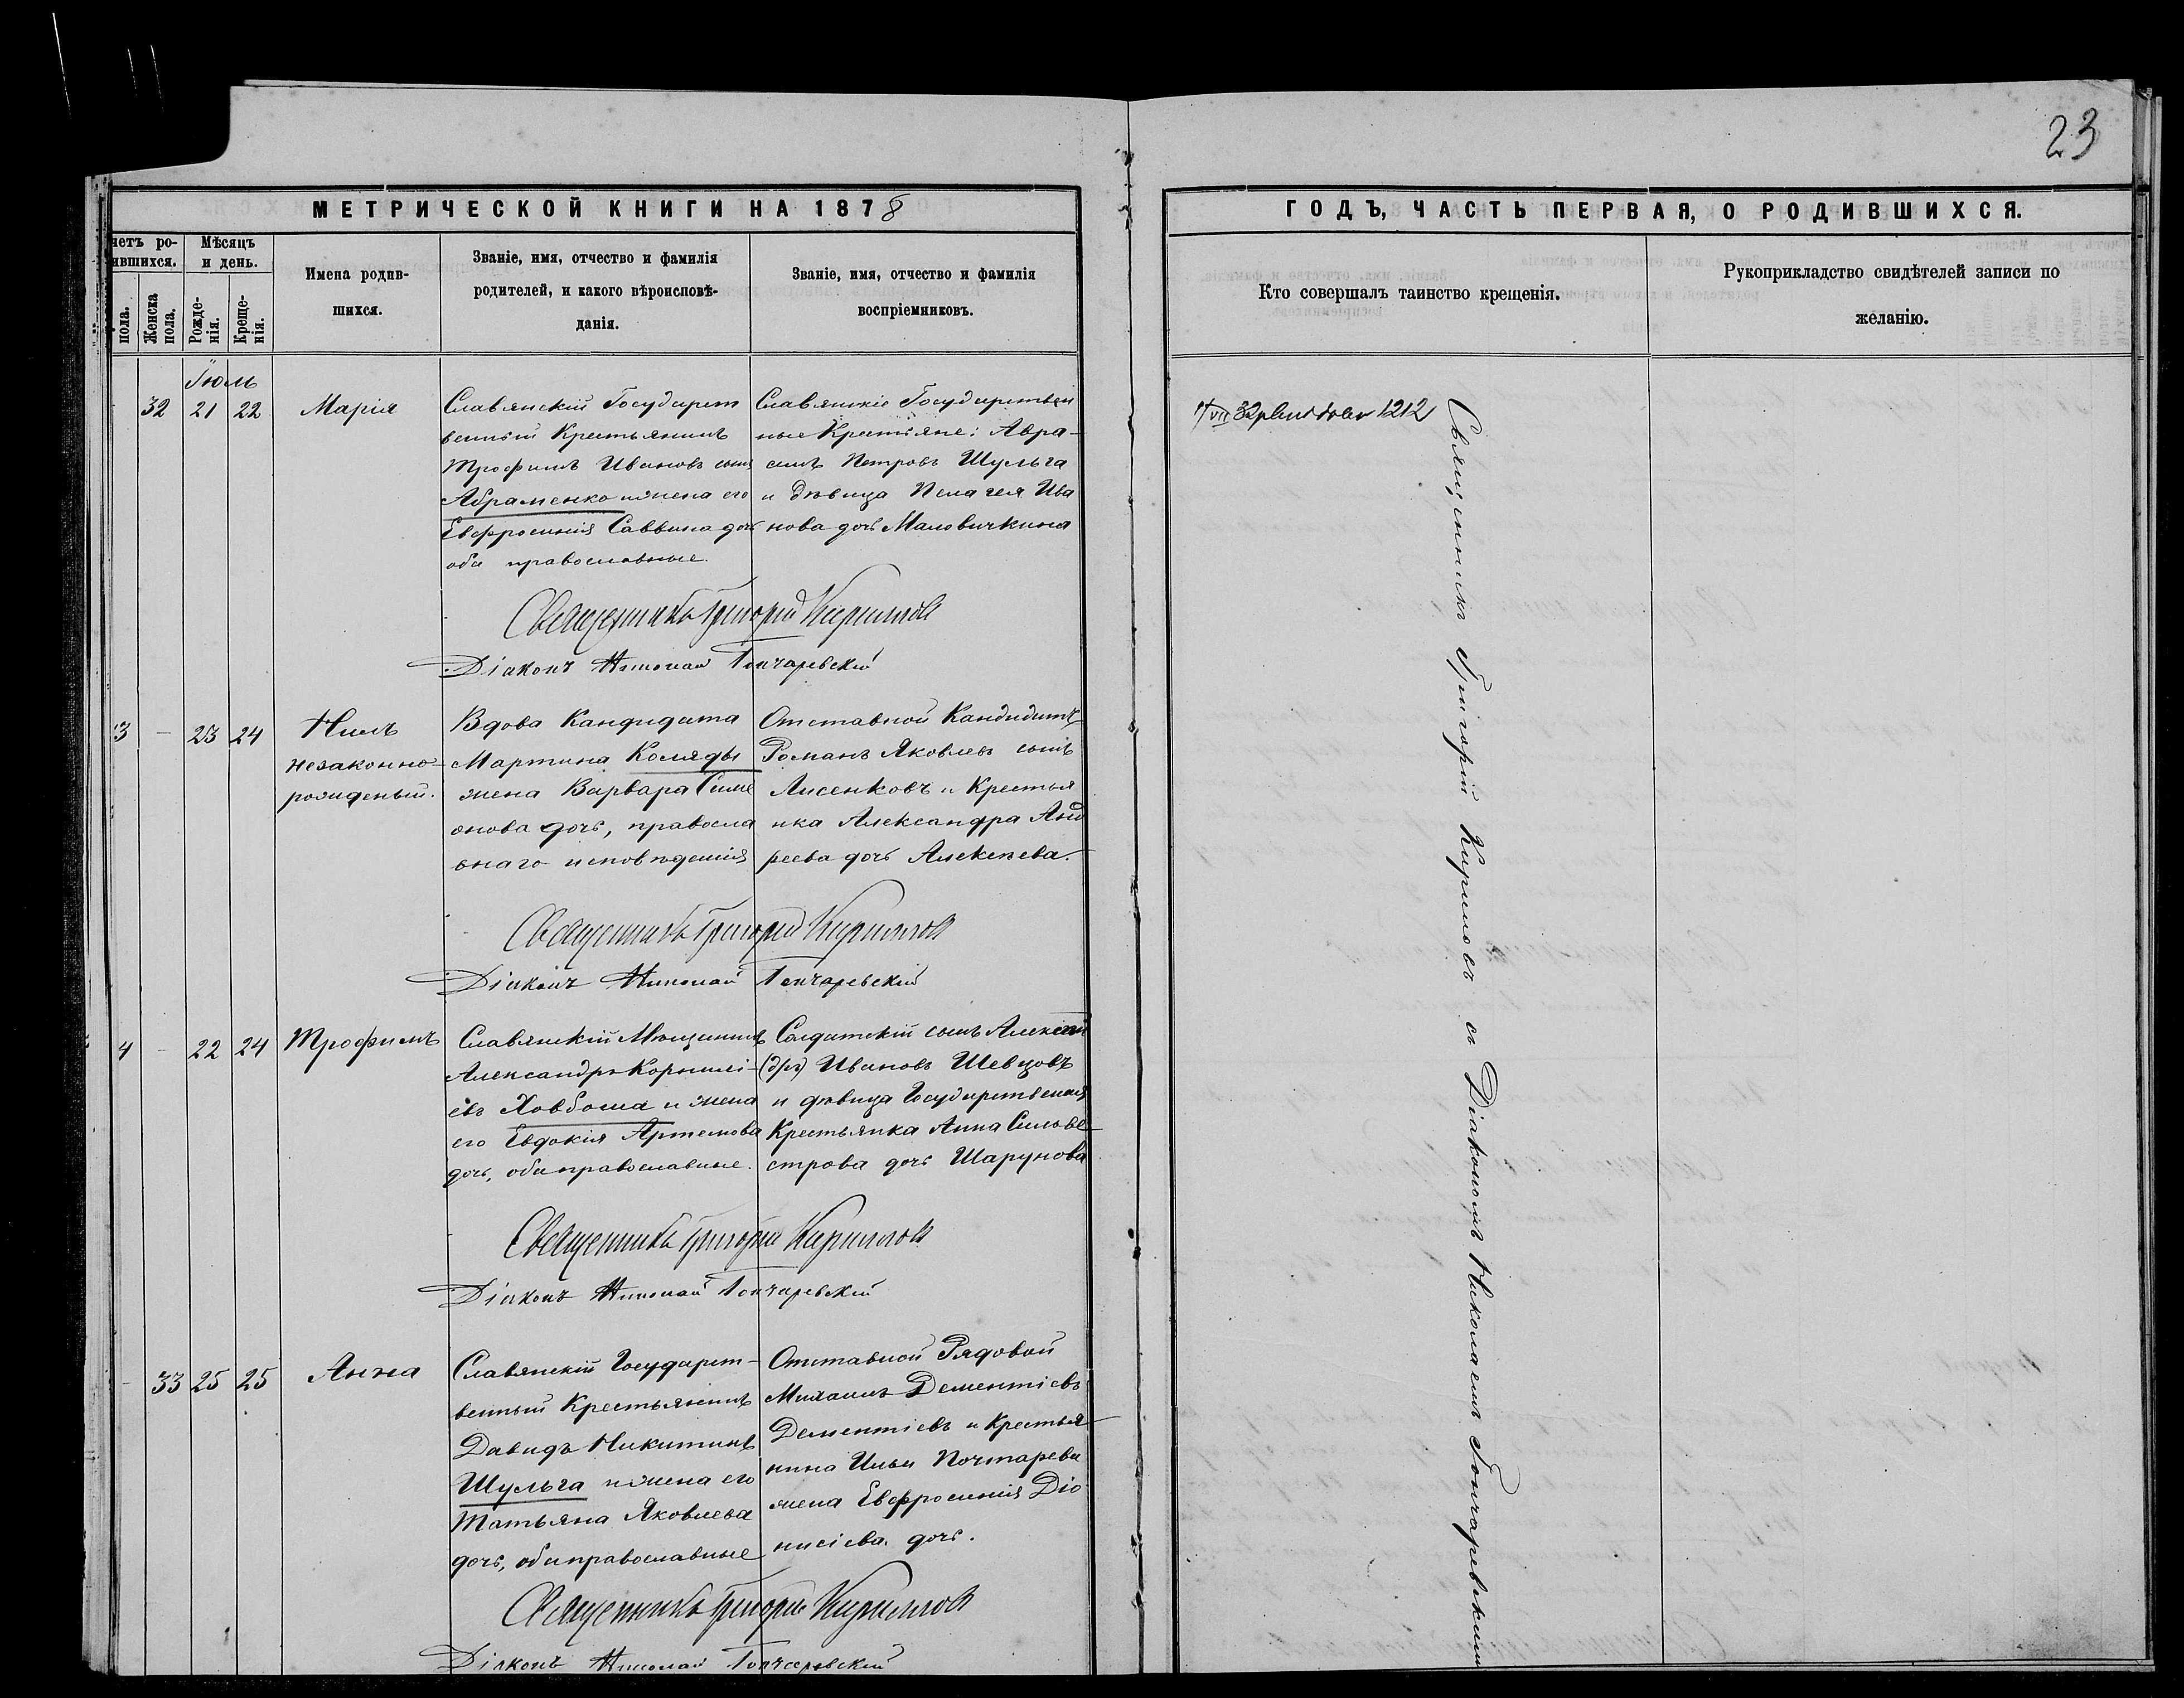 23
МЕТРИЧЕСКОЙ КНИГИ НА 1878
ГОДЪ, ЧАСТЬ ПЕРВАЯ, О РОДИВШИХСЯ.
четъ ро-
ившихся.
пола.
Женска
пола.
Мѣсяцъ
и день.
Рожде-
нія.
Креще-
нія.
Имена родив-
шихся.
Званіе, имя, отчество и фамилія
родителей, и какого вѣроисповѣ-
данія.
Званіе, имя, отчество и фамилія
воспріемниковъ.
Кто совершалъ таинство крещенія.
Рукоприкладство свидѣтелей записи по
желанію.
Іюль
32 21 22
Марія
Славянскій Государст
венный Крестьянинъ
Трофимъ Ивановъ сынъ
Абраменко и жена его
Евфросинія Саввина дочь
оба православные.
Славянскіе Государствен
ные Крестьяне: Авра-
амъ Петровъ Шульга
и дѣвица Пелагея Ива
нова дочь Маловичкина
Священникъ Григорій Кирилловъ
Діаконъ Николай Гончаревскій
3 — 23 24
Нилъ
незаконно-
рожденый.
Вдова Кандидата
Мартина Коляды
жена Варвара Симе
онова дочь, правосла
внаго исповѣданія
Отставной Кандидатъ
Романъ Яковлевъ сынъ
Лисенковъ и Крестья
нка Александра Анд
реева дочь Алексѣева.
Священникъ Григорій Кирилловъ
Діаконъ Николай Гончаревскій
4 — 22 24
Трофимъ
Славянскій Мѣщанинъ
Александръ Корнилі-
евъ Ховбоша и жена
его Евдокія Артемова
дочь, оба православные.
Солдатскій сынъ Алексѣй
Ивановъ Шевцовъ
и дѣвица Государственная
Крестьянка Анна Сильве
строва дочь Шарунова
Священникъ Григорій Кирилловъ
Діаконъ Николай Гончаревскій
— 33 25 25
Анна
Славянскій Государст-
венный Крестьянинъ
Давидъ Никитинъ
Шульга и жена его
Татьяна Яковлева
дочь, оба православные
Отставной Рядовой
Михаилъ Дементіевъ
Дементіевъ и Крестья
нина Ильи Почтарева
жена Евфросинія Діо
нисіева дочь.
Священникъ Григорій Кирилловъ
Діаконъ Николай Гончаревскій
1212
Священникъ Григорій Кириловъ съ Діакономъ Николаемъ Гончаревскимъ